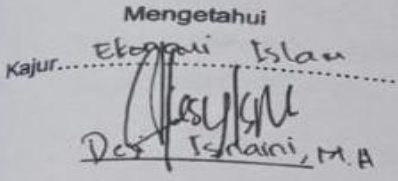 Mengetahui
Kajur. Ekonomi Islam
Desi Isnaini, M.A